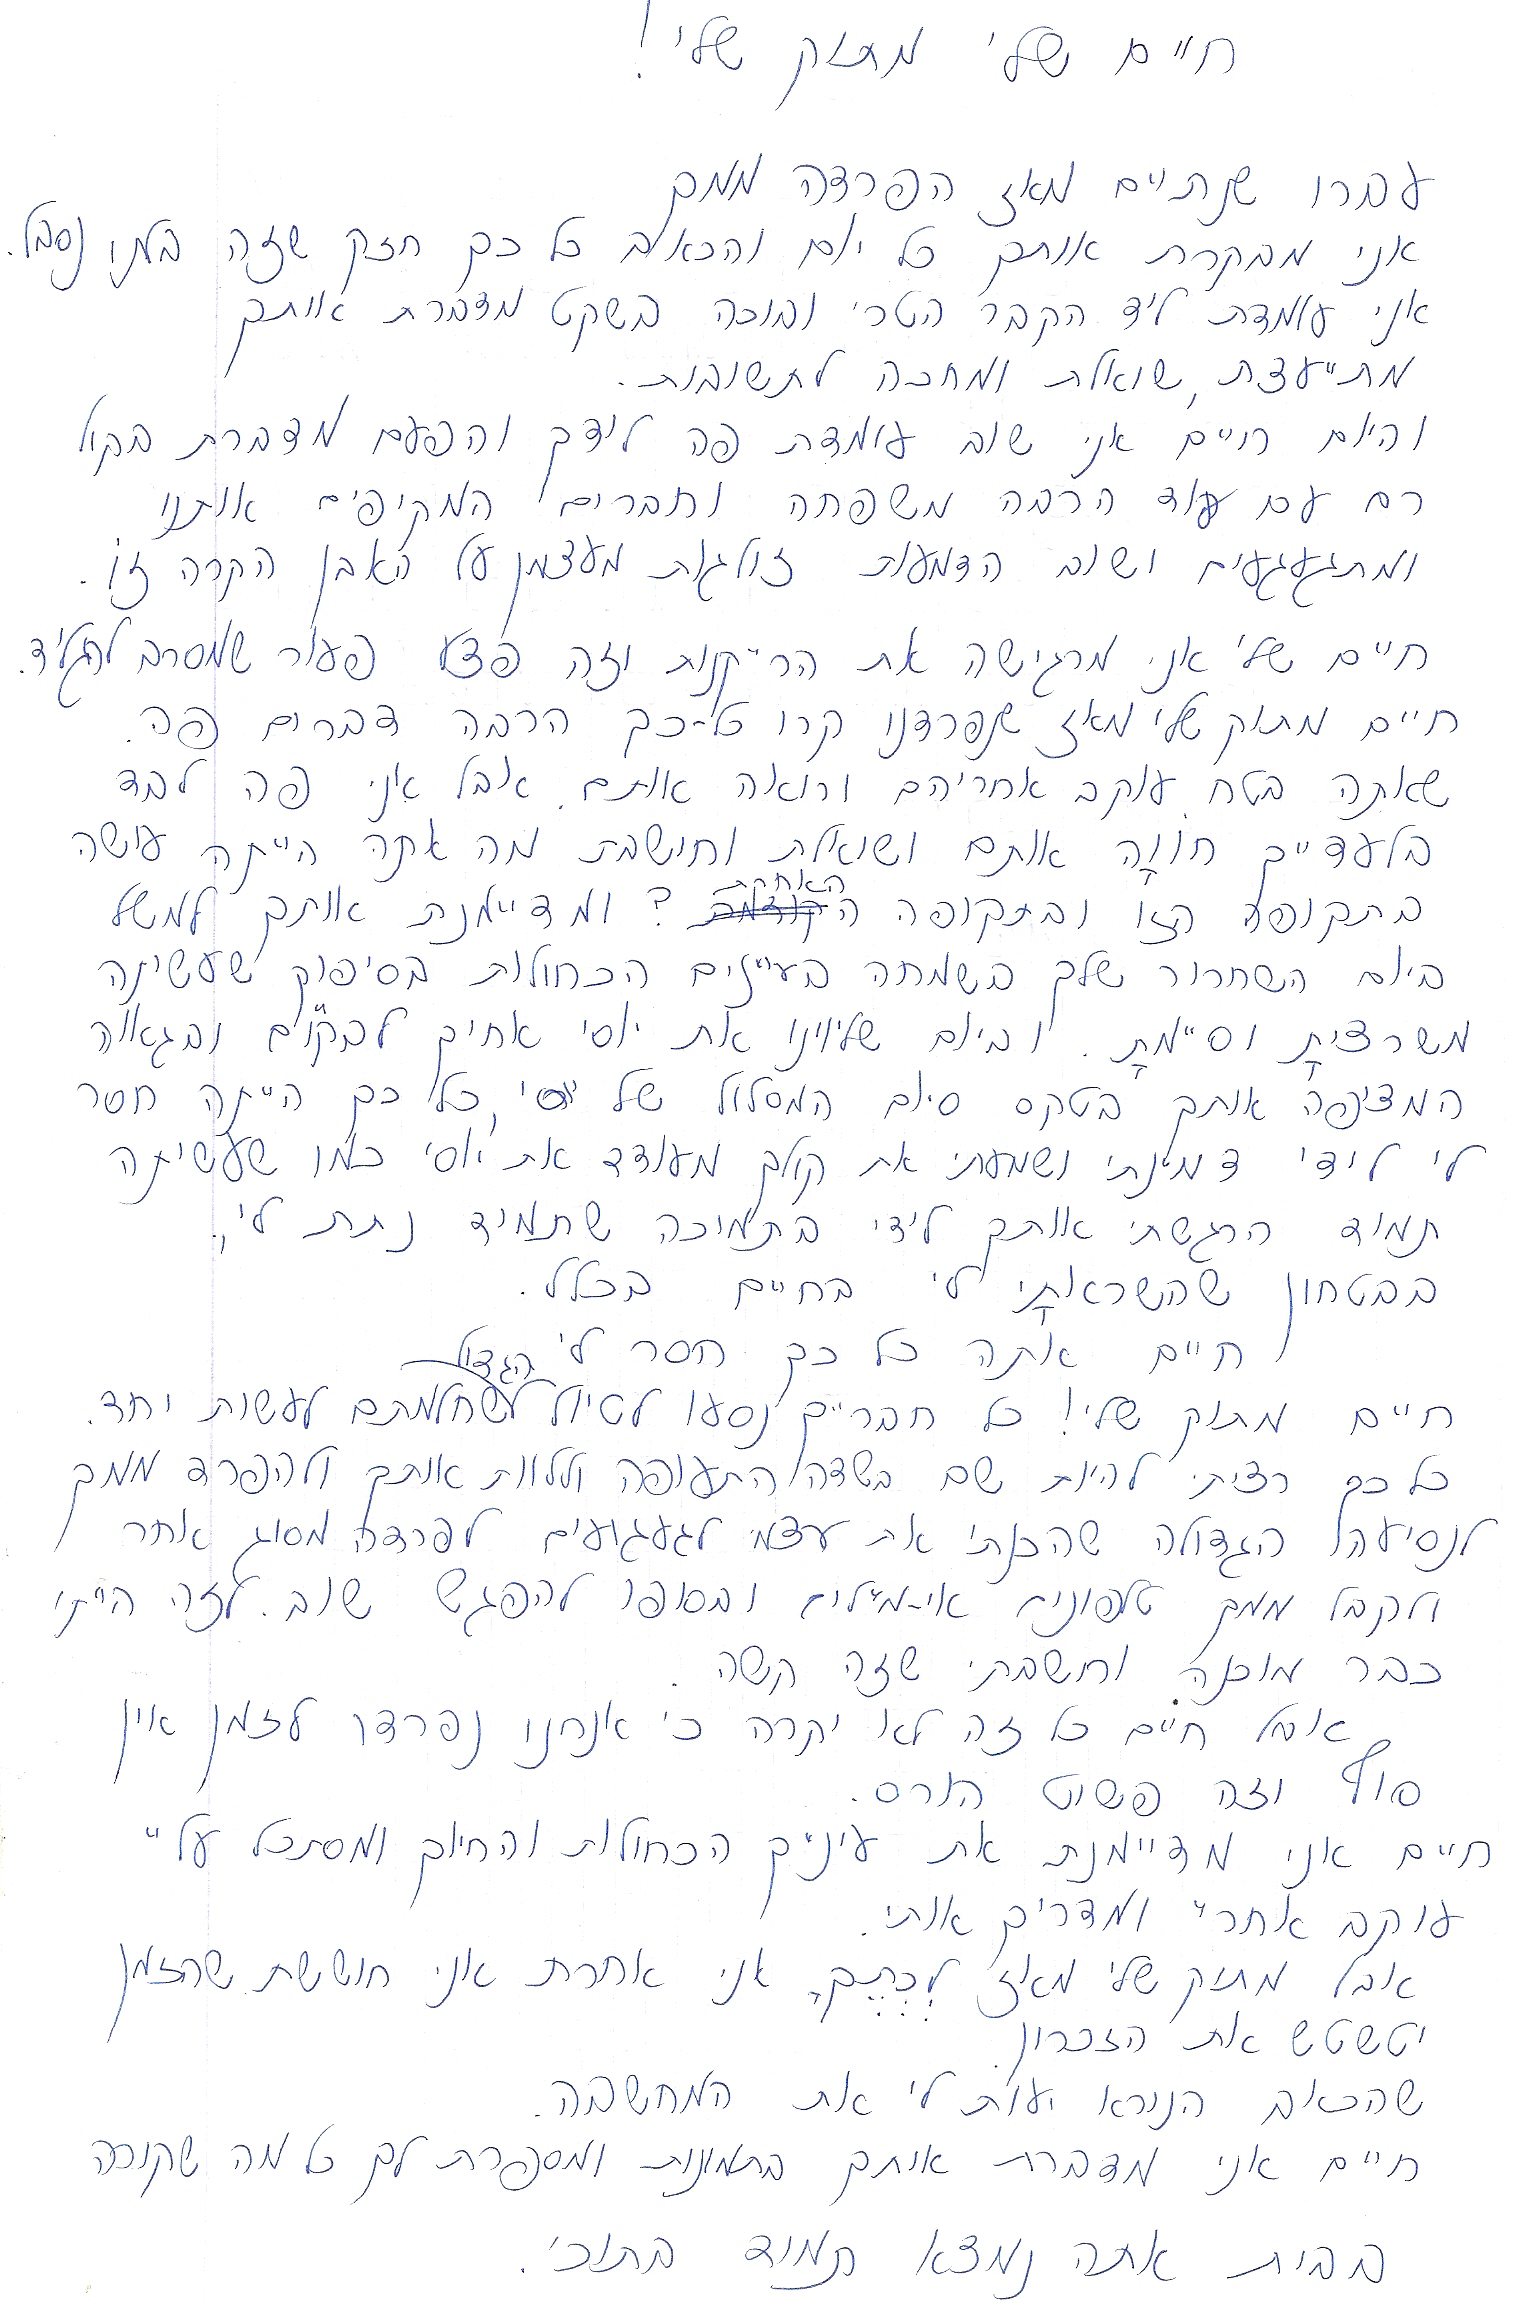 חיים שלי מתוק שלי!
עברו שנתיים מאז הפרדה ממך
אני מבקרת אותך כל יום והכאב כל כך חזק שזה בלתי נסבל.
אני עומדת ליד הקבר הטרי ובוכה בשקט מדברת אותך
מתייעצת, שואלת ומחכה לתשובות.
והיום חיים אני שוב עומדת פה לידך והפעם מדברת בקול
רם עם עוד הרבה משפחה וחברים המקיפים אותנו
ומתגעגעים ושוב הדמעות זולגות מעצמן על האבן הקרה זו.
חיים שלי אני מרגישה את הריקנות וזה פצע פעור שמסרב להגליד.
חיים מתוק שלי מאז שנפרדנו קרו כל-כך הרבה דברים פה.
שאתה בטח עוקב אחריהם ורואה אותם. אבל אני פה לבד
בלעדייך חווה אותם ושואלת וחושבת מה אתה היית עושה
בתקופה הזו ובתקופה האחרת? ומדיימנת אותך למשל
ביום השחרור שלך בשמחה בעיינים הכחולות בסיפוק שעשיתה
משרציתָ וסיימתָ. וביום שליוינו את יוסי אחיך לבקו"ם ובגאווה
המציפה אותך בטקס סיום המסלול של יוסי, כל כך הייתה חסר
לי לידי דמינתי ושמעתי את קולך מעודד את יוסי כמו שעשיתה
תמיד הרגשתי אותך לידי בתמיכה שתמיד נתת לי,
בבטחון שהשראתָי לי בחיים בכלל.
חיים אתה כל כך חסר לי
חיים מתוק שלי! כל חברייך נסעו לטיול הגדול שחלמתם לעשות יחד.
כל כך רציתי להיות שם בשדה התעופה וללוות אותך ולהפרד ממך
לנסיעה הגדולה שהכנתי את עצמי לגעגועים לפרדה מסוג אחר
ולקבל ממך טלפונים אי-מיילים ובסופו להפגש שוב. לזה הייתי
כבר מוכנה וחשבתי שזה קשה.
אבל חיים כל זה לא יקרה כי אנחנו נפרדו לזמן אין
סוף וזה פשוט הורס.
חיים אני מדיימנת את עינייך הכחולות והחיוך ומסתכל עליי
עוקב אחריי ומדריך אותי.
אבל מתוק שלי מאז לֶכְתְּךָ, אני אחרת אני חוששת שהזמן
יטשטש את הזכרון
שהכאב הנורא יעוות לי את המחשבה.
חיים אני מדברת אותך בתמונות ומספרת לך כל מה שקורה
בבית אתה נמצא תמיד בתוכי.